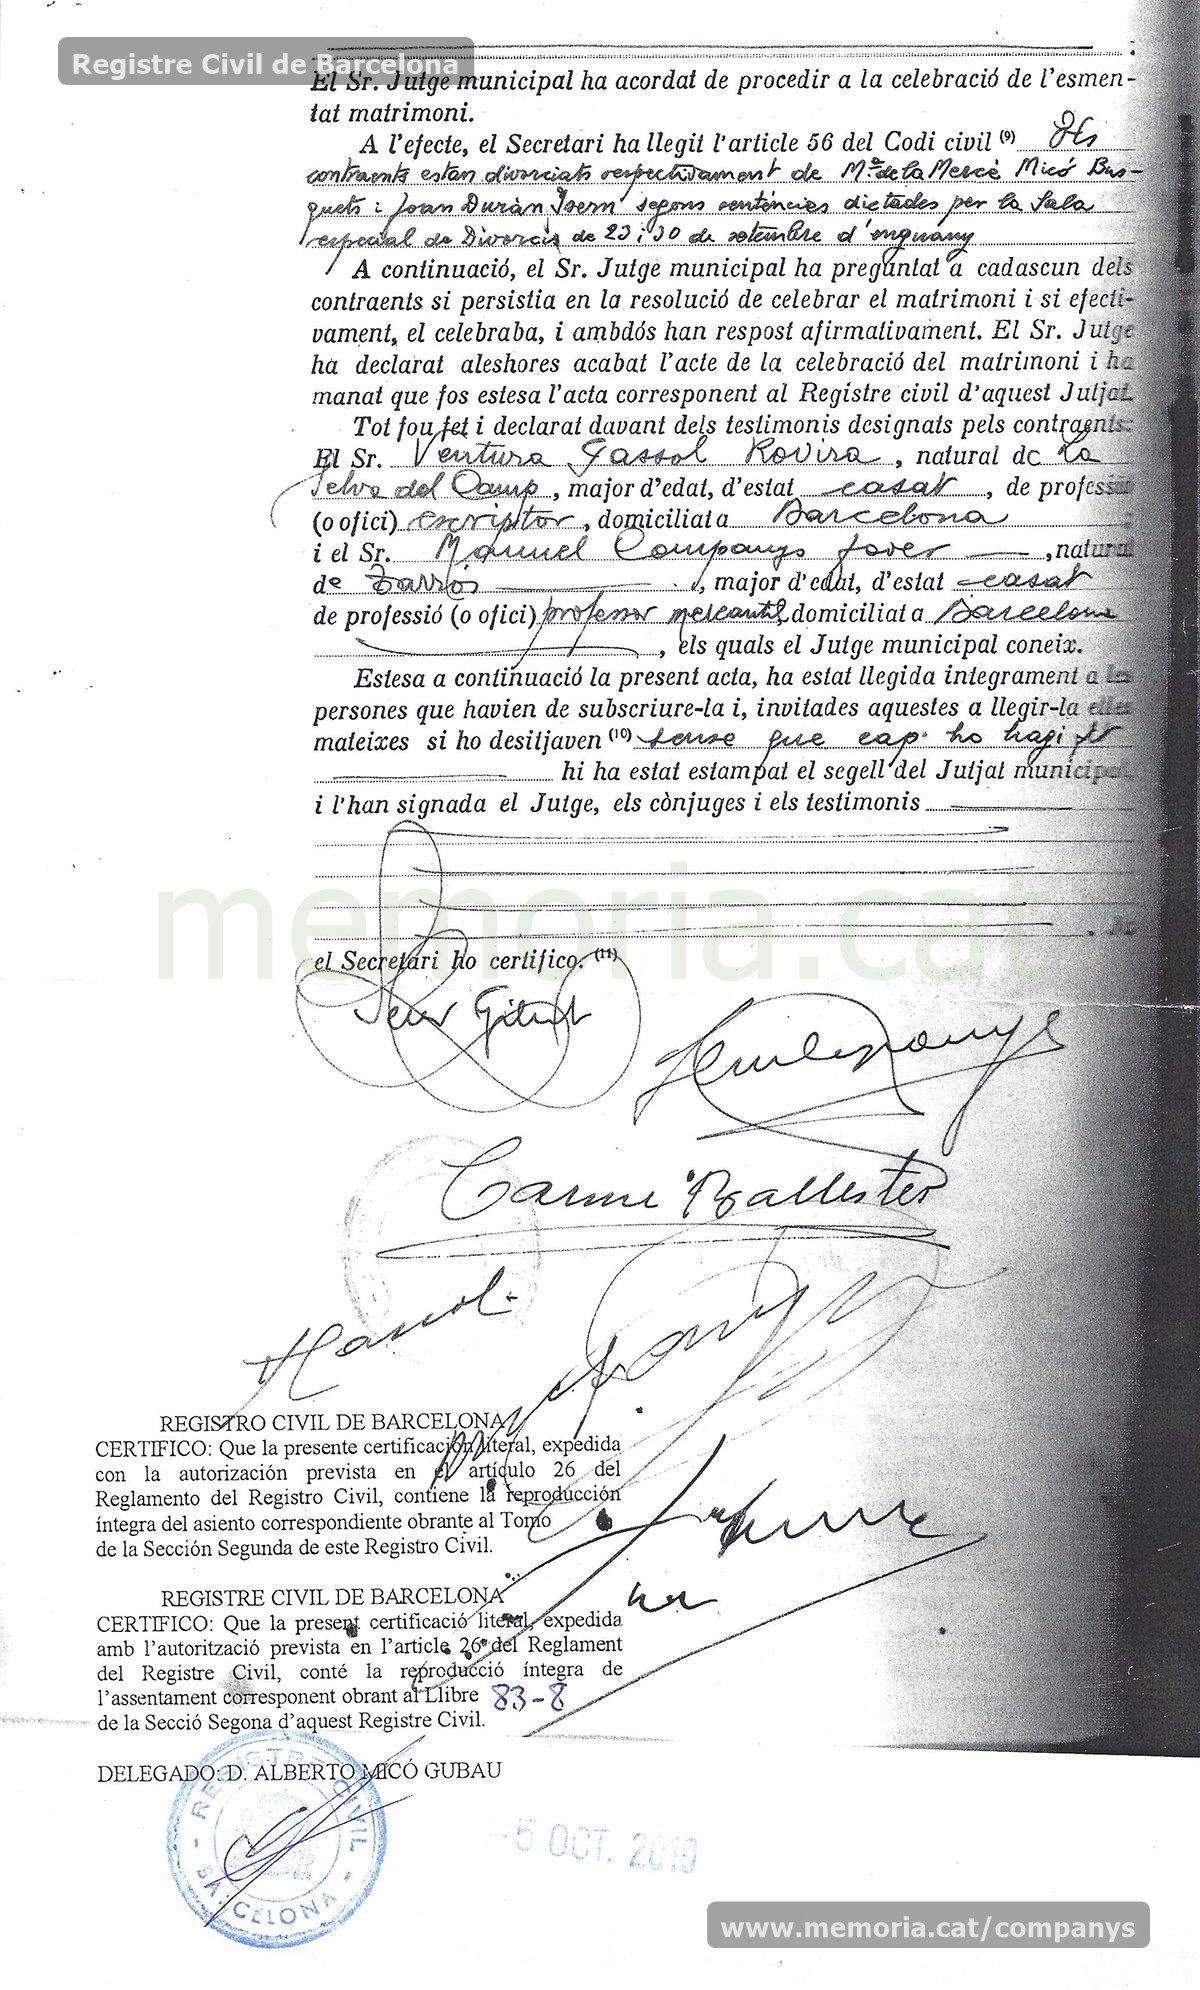 Registre Civil de Barcelona
El Sr. Jutge municipal ha acordat de procedir a la celebració de l'esmen-
tat matrimoni.
A l'efecte, el Secretari ha llegit l'article 56 del Codi civil (9) Els
contraents estan divorciats respectivament de Mª de la Mercè Micó Bus-
quets i Joan Duràn Isern segons sentències dictades per la Sala
especial de Divorcis de 23 i 30 de setembre d'enguany
A continuació, el Sr. Jutge municipal ha preguntat a cadascun dels
contraents si persistia en la resolució de celebrar el matrimoni i si efecti-
vament, el celebraba, i ambdós han respost afirmativament. El Sr. Jutge
ha declarat aleshores acabat l'acte de la celebració del matrimoni i ha
manat que fos estesa l'acta corresponent al Registre civil d'aquest Jutjat.
Tot fou fet i declarat davant dels testimonis designats pels contraents:
El Sr. Ventura Gassol Rovira, natural de La
Selva del Camp, major d'edat, d'estat casat, de professió
(o ofici) escriptor, domiciliat a Barcelona
i el Sr. Manuel Companys Jover, natural
de Tarròs, major d'edat, d'estat casat
de professió (o ofici) professor mercantil, domiciliat a Barcelona
, els quals el Jutge municipal coneix.
Estesa a continuació la present acta, ha estat llegida integrament a les
persones que havien de subscriure-la i, invitades aquestes a llegir-la elles
mateixes si ho desitjaven (10) sense que cap ho hagi fet
hi ha estat estampat el segell del Jutjat municipal
i l'han signada el Jutge, els cònjuges i els testimonis
memoria.cat
el Secretari ho certifico. (11)
Companys
Carme Ballester
REGISTRO CIVIL DE BARCELONA
CERTIFICO: Que la presente certificación literal, expedida
con la autorización prevista en el artículo 26 del
Reglamento del Registro Civil, contiene la reproducción
íntegra del asiento correspondiente obrante al Tomo
de la Sección Segunda de este Registro Civil.
REGISTRE CIVIL DE BARCELONA
CERTIFICO: Que la present certificació literal, expedida
amb l'autorització prevista en l'article 26 del Reglament
del Registre Civil, conté la reproducció íntegra de
l'assentament corresponent obrant al Llibre 83-8
de la Secció Segona d'aquest Registre Civil.
DELEGADO: D. ALBERTO MICÓ GUBAU
- REGISTRE CIVIL - BARCELONA
-5 OCT. 2010
www.memoria.cat/companys